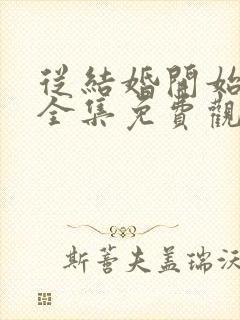 從結婚開始
全集免費觀
斯蒈夫盖瑞沃